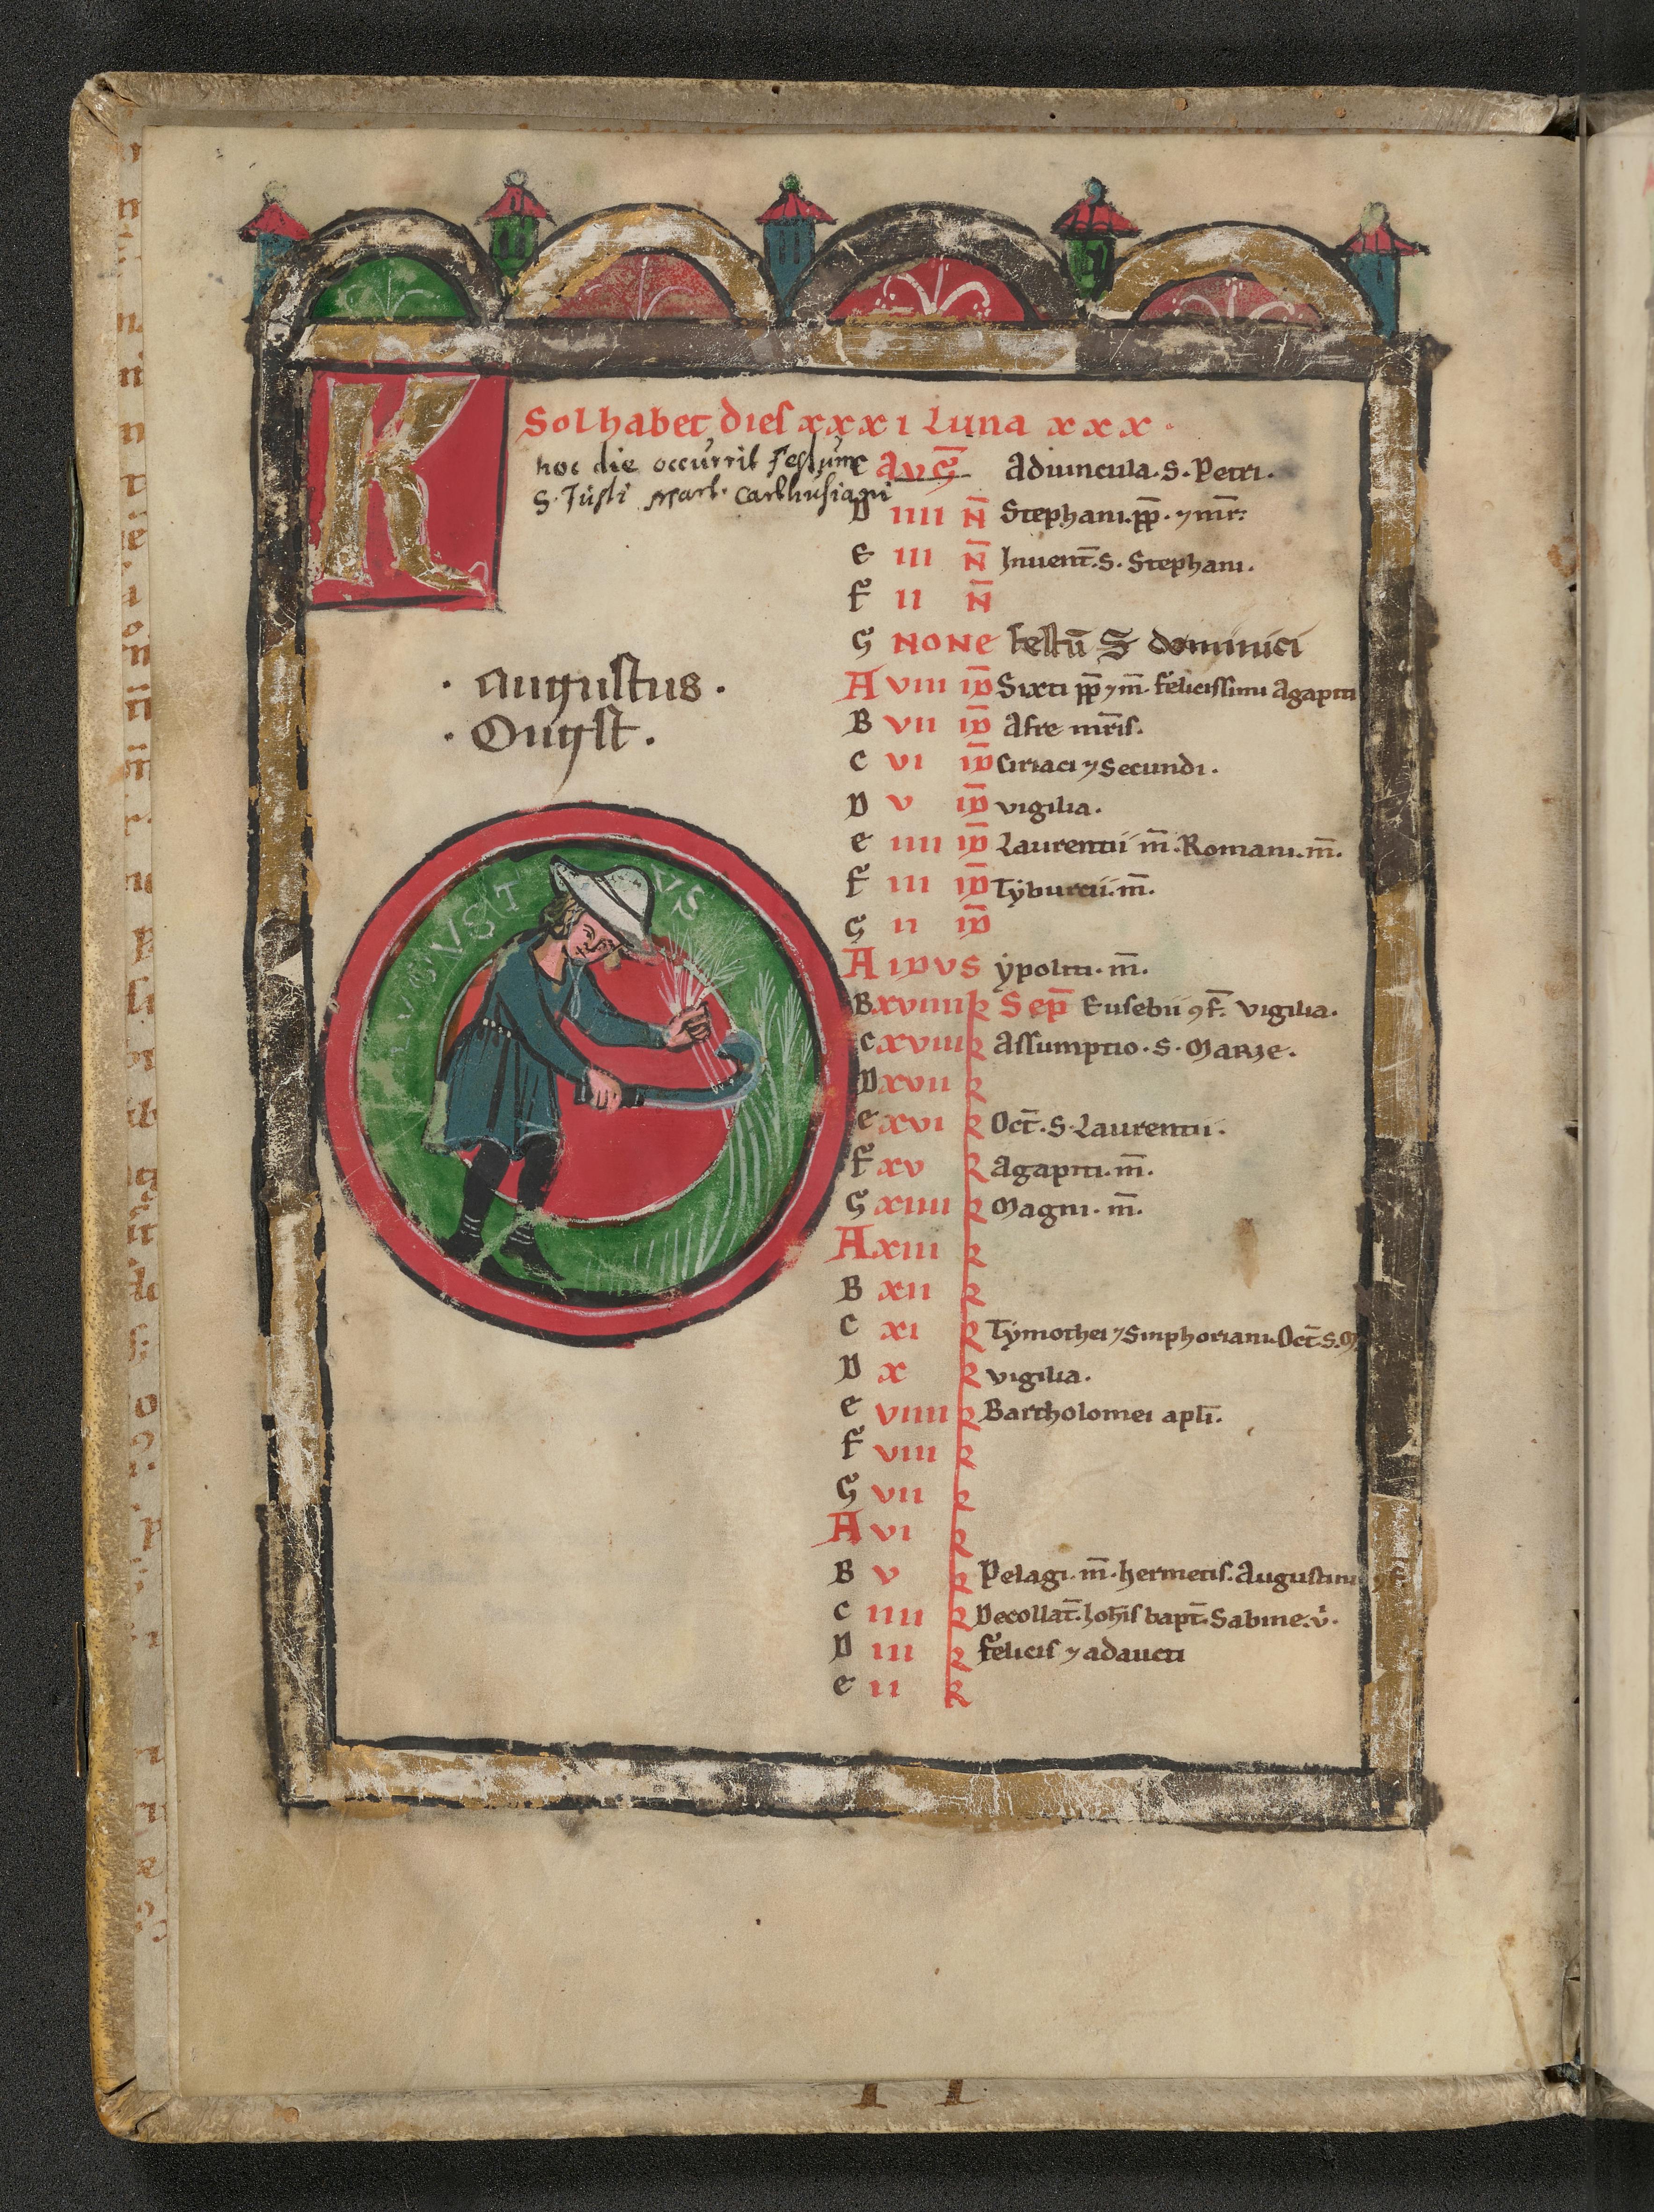 K
Sol habet dies xxxi Luna xxx.
hoc die occurrit Festum
S. Justi Mart. Carthusiani
c AVG̅ Adiuncula. S. Petri.
D IIII N̅ Stephani. pp̅. ⁊ mr̅.
e III N̅ Inuent̅. S. Stephani.
F II N̅
G NONE festū S dominici
· Augustus ·
· Ougst ·
A VIII ID̅ Sixti pp̅ ⁊ m̅. felicissimi Agapiti
B VII ID̅ Afre mr̅is.
c VI ID̅ Ciriaci ⁊ Secundi.
D V ID̅ vigilia.
e IIII ID̅ Laurentii m̅. Romani. m̅.
F III ID̅ Tyburcii. m̅.
G II ID̅
VGVSTVS
A IDVS ypoliti. m̅.
B xviiii k Sep̅ Eusebii ꝯf̅. vigilia.
c xviii k Assumptio. S. Marie.
D xvii k
e xvi k Oct̅. S. Laurentii.
F xv k Agapiti. m̅.
G xiiii k Magni. m̅.
A xiii k
B xii k
c xi k Tymothei ⁊ Sinphoriani. Oct̅. S. M
D x k vigilia.
e viiii k Bartholomei apl̅i.
F viii k
G vii k
A vi k
B v k Pelagi. m̅. hermetis. Augustini ꝯf.
c iiii k Decollat̅. Ioh̅is bapt̅. Sabine. v.
D iii k felicis ⁊ adaucti
e ii k